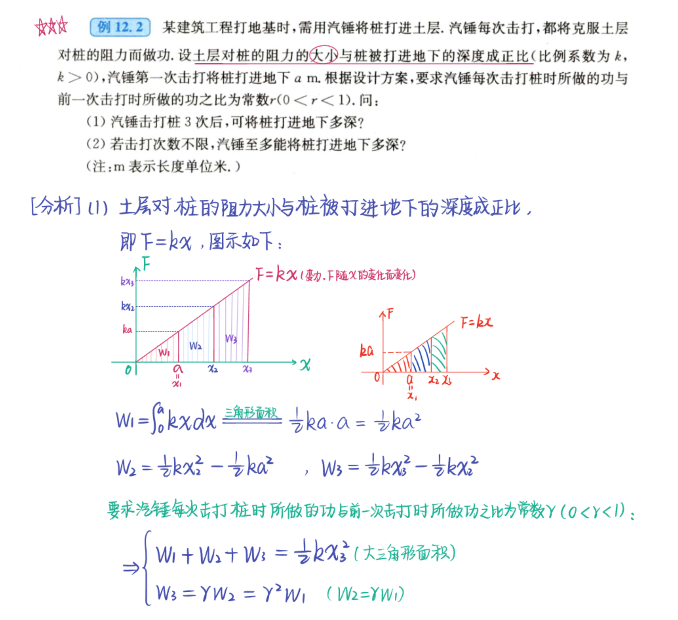 ☆☆☆ 例 12.2 某建筑工程打地基时,需用汽锤将桩打进土层.汽锤每次击打,都将克服土层
对桩的阻力而做功.设土层对桩的阻力的大小与桩被打进地下的深度成正比(比例系数为 k,
k>0),汽锤第一次击打将桩打进地下 a m.根据设计方案,要求汽锤每次击打桩时所做的功与
前一次击打时所做的功之比为常数r(0<r<1).问:
(1) 汽锤击打桩 3 次后,可将桩打进地下多深?
(2) 若击打次数不限,汽锤至多能将桩打进地下多深?
(注:m 表示长度单位米.)
[分析] (1) 土层对桩的阻力大小与桩被打进地下的深度成正比,
即 F=kx ,图示如下:
F
kx₃
kx₂
ka
F=kx (变力,F随x的变化而变化)
W₁ W₂ W₃
0 a x₂ x₃ x
=
x₁
F
F=kx
ka
0 a x₂ x₃ x
=
x₁
W₁=∫₀ᵃkxdx 三角形面积 ½ka·a = ½ka²
W₂ = ½kx₂² - ½ka² , W₃ = ½kx₃² - ½kx₂²
要求汽锤每次击打桩时所做的功与前一次击打时所做功之比为常数r (0<r<1):
⇒ { W₁+W₂+W₃ = ½kx₃² (大三角形面积)
W₃ = rW₂ = r²W₁ (W₂=rW₁)